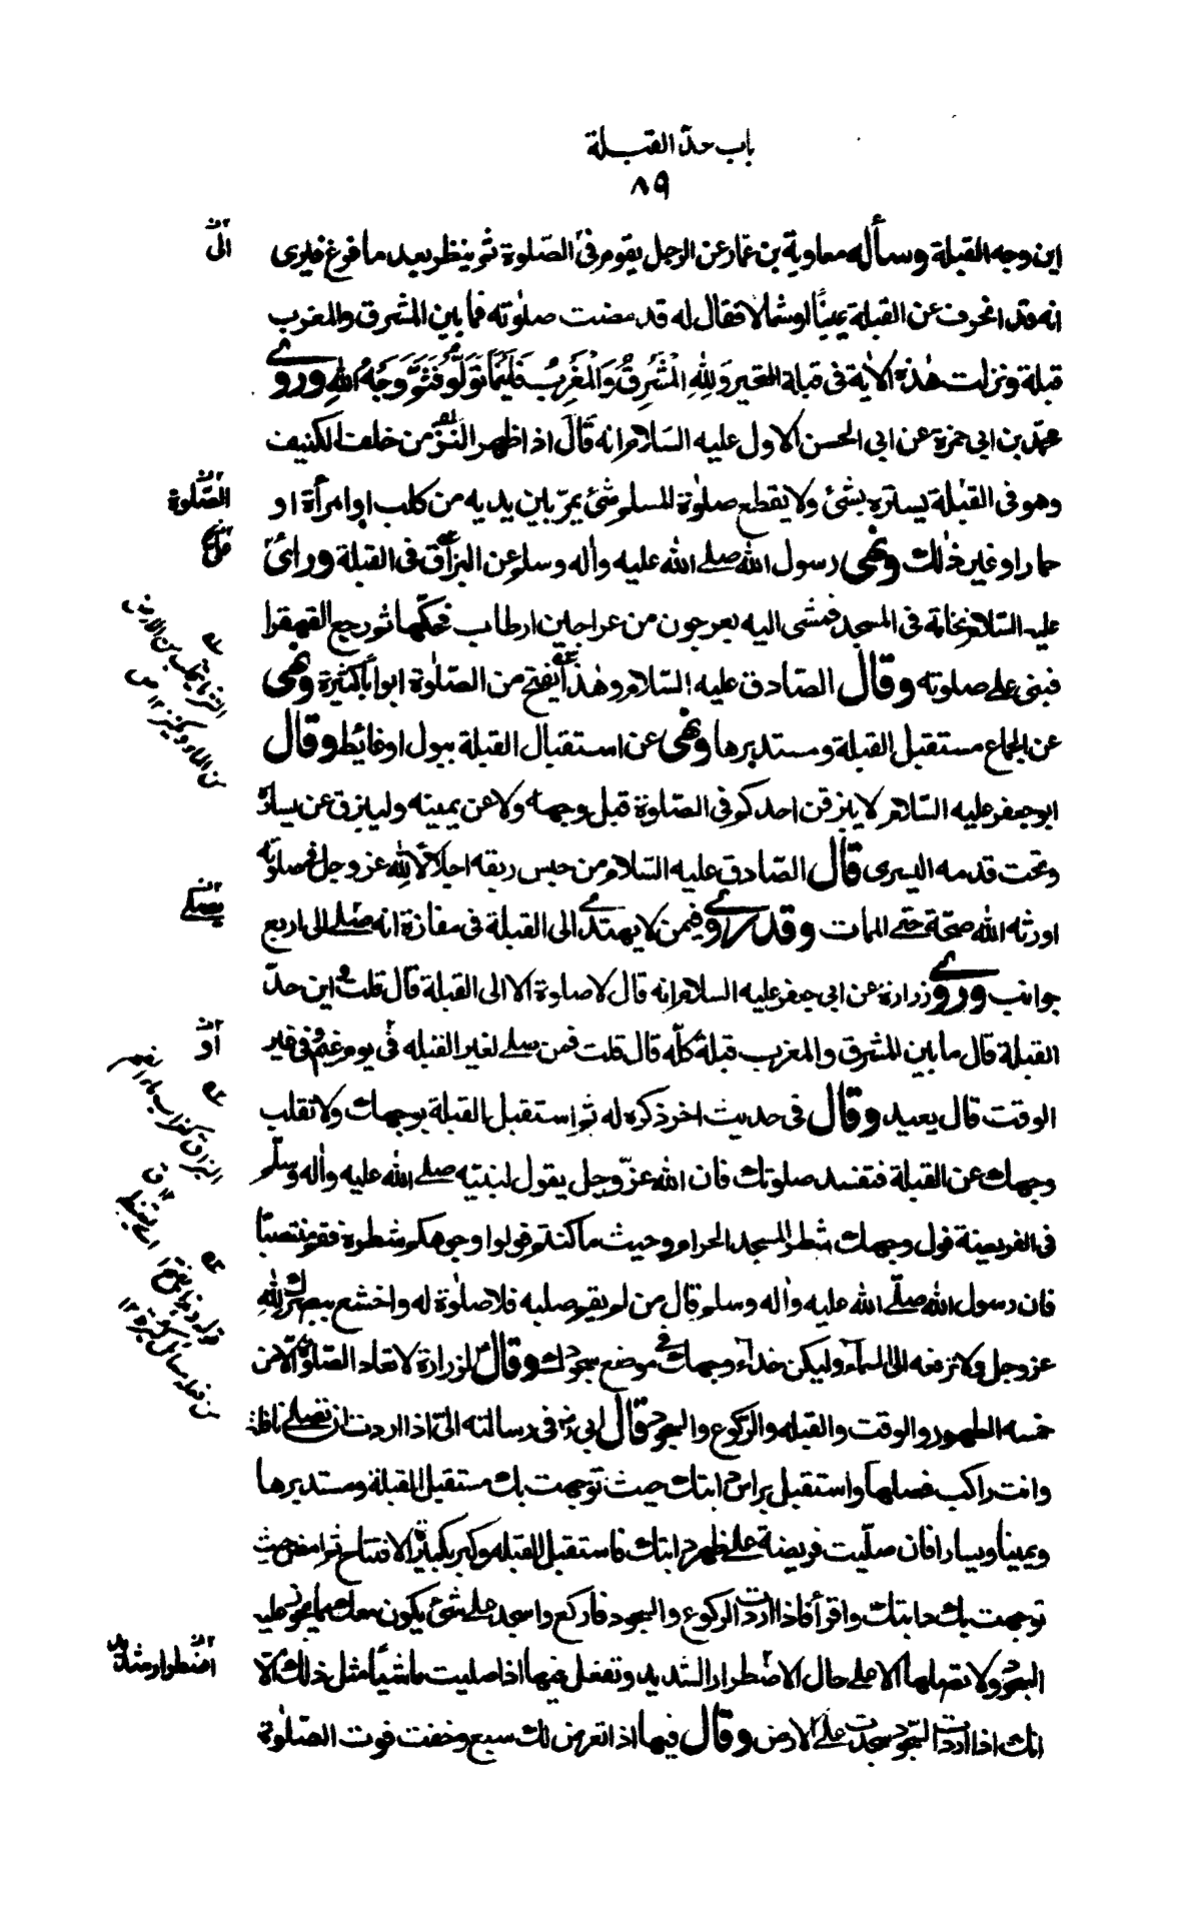 باب حدّ القبلة
٨٩
اين وجه القبلة وسأله معاوية بن عمّار عن الرجل يقوم فى الصّلوة ثم ينظر بعد ما فرغ فيرى
انه قد انحرف عن القبلة يمينًا او شمالا فقال له قد مضت صلوٰته فما بين المشرق والمغرب
قبلة ونزلت هٰذه الاٰية فى قبلة المتحير وَلِلّٰهِ الْمَشْرِقُ وَالْمَغْرِبُ فَاَيْنَمَا تُوَلُّوْ فَثَمَّ وَجْهُ اللّٰهِ وروى
محمّد بن ابى حمزة عن ابى الحسن الاول عليه السّلام انه قَالَ اذا ظهر النّزّ من خلف الكنيف
وهو فى القبْلة يستره بشئ ولا يقطع صلوٰة المسلم شئ يمرّ بين يديه من كلب او امرأة او
حمار او غير ذٰلك ونهى رسول اللّٰه صلى اللّٰه عليه واٰله وسلم عن البزاق فى القبلة ورأى
عليه السّلام نخامة فى المسجد فمشى اليه بعرجون من عراجين ارطاب فحكّها ثم رجع القهقرا
فبنى على صلوته وقال الصّادق عليه السّلام وهٰذا يفتح من الصّلوٰة ابوابًا كثيرة ونهى
عن الجماع مستقبل القبلة ومستدبرها ونهى عن استقبال القبلة ببول او غائط وقال
ابو جعفر عليه السّلام لا يبزقن احدكم فى الصّلوة قبل وجهه ولا عن يمينه وليبزق عن يساره
وتحت قدمه اليسرى قال الصّادق عليه السّلام من حبس ريقه اجلالًا للّٰه عز وجل فى صلوته
اورثه اللّٰه صحّة حتى الممات وقد روى فيمن لا يهتدى الى القبلة فى مفازة انه صلى الى اربع
جوانب وروى زرارة عن ابى جعفر عليه السلام انه قال لا صلوة الا الى القبلة قال قلت و اين حدّ
القبلة قال ما بين المشرق والمغرب قبلة كلّه قال قلت فمن صلى لغير القبله فى يوم غيم و فى غير
الوقت قال يعيد وقال فى حديث اخر ذكره له ثم استقبل القبلة بوجهك ولا تقلب
وجهك عن القبلة فتفسد صلوتك فان اللّٰه عزّ وجل يقول لنبيّه صلى اللّٰه عليه واٰله وسلّم
فى الفريضة فول وجهك شطر المسجد الحرام وحيث ما كنتم فولوا وجوهكم شطره فقم منتصبًا
فان رسول اللّٰه صلّى اللّٰه عليه واٰله وسلم قال من لم يقم صلبه فلا صلوٰة له واخشع ببصرك للّٰه
عز وجل ولا ترفعه الى السماء وليكن حذاء وجهك فى موضع سجودك وقال لزرارة لا تعاد الصّلوٰة الّا من
خمسه الطهور والوقت والقبله والركوع والسجود قال ابى رض فى رسالته الىّ اذا اردت ان تصلى نافلة
وانت راكب فصلها واستقبل براس دابتك حيث توجهت بك مستقبل القبلة ومستدبرها
ويمينا ويسارا فان صلّيت فريضة على ظهر دابتك فاستقبل القبله وكبر تكبيرة الافتتاح ثم امض حيث
توجهت بك دابتك واقرأ فاذا اردت الركوع والسجود فاركع واسجد على شئ يكون معك مما يجوز عليه
السجود ولا تصلها الا على حال الاضطرار الشديد وتفعل فيها اذا صليت ماشيًا مثل ذلك الّا
انك اذا اردت السّجود سجدت على الارض وقال فيها اذا تعرض لك سبع وخفت فوت الصّلوٰة
الى
الصّلوة
يصلى
او